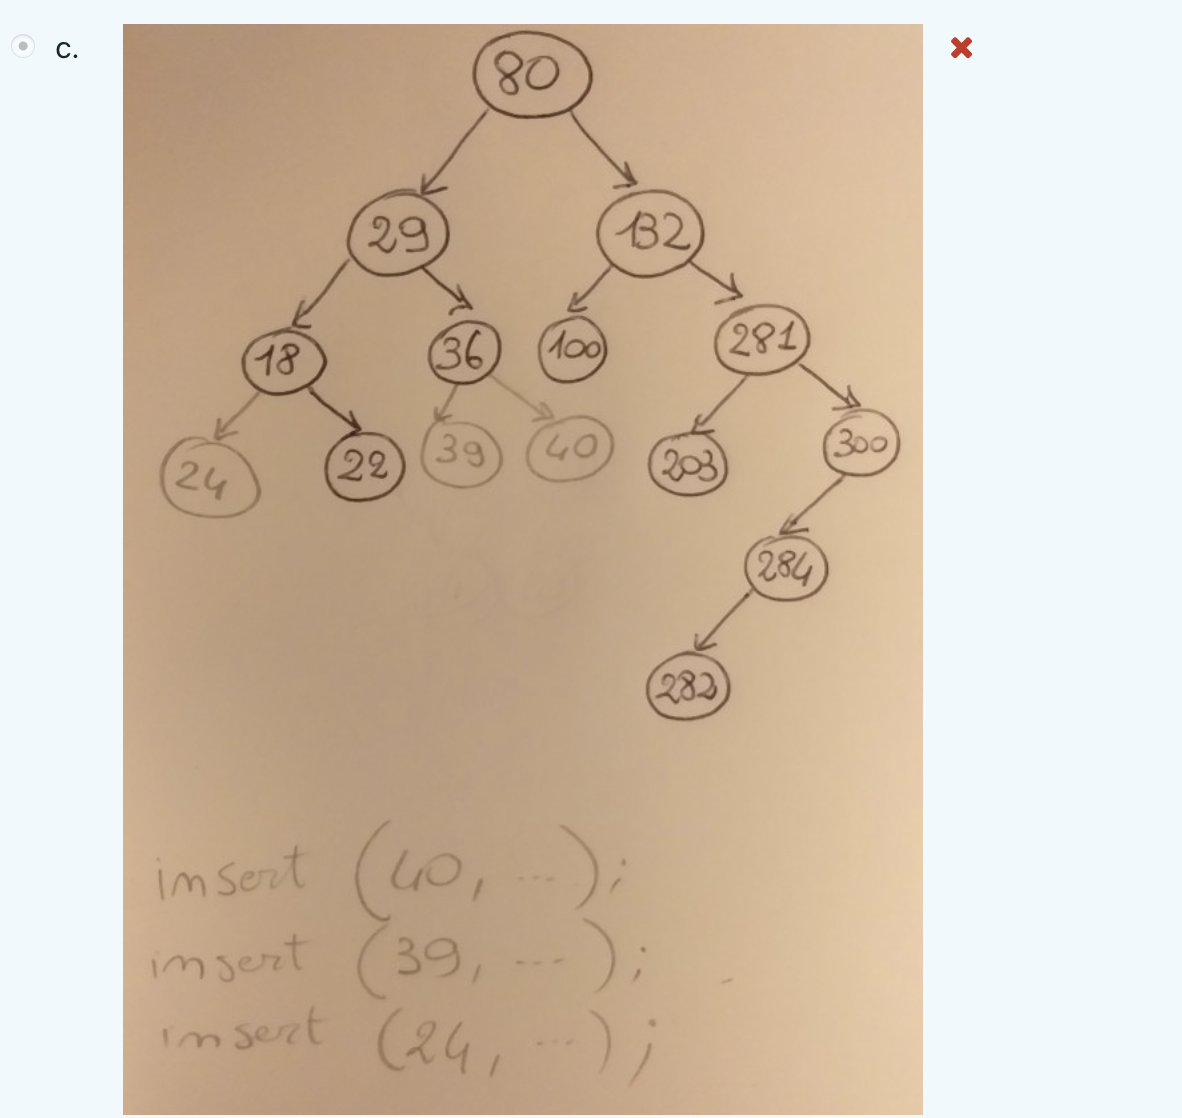 c.
80
29 132
18 36 100 281
24 22 39 40 203 300
284
282
insert (40, ...);
insert (39, ...);
insert (24, ...);